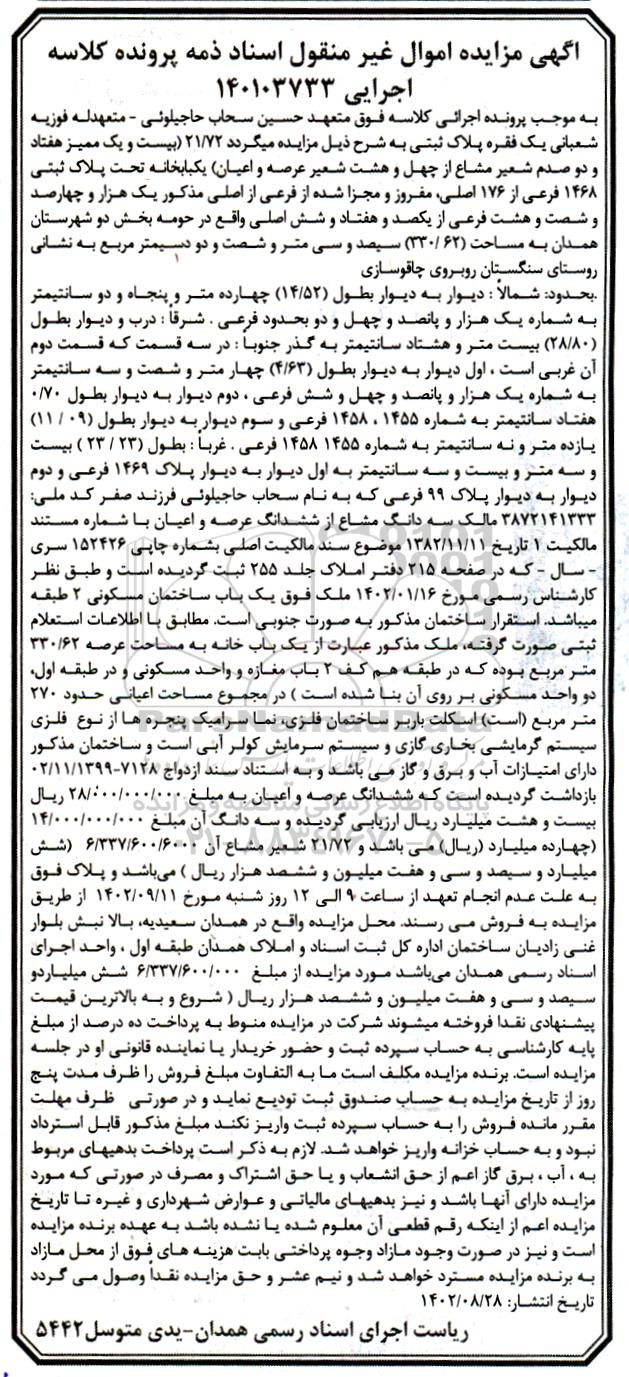 آگهی مزایده اموال غیر منقول اسناد ذمه پرونده کلاسه
اجرایی ۱۴۰۱۰۳۷۳۳
به موجب پرونده اجرائی کلاسه فوق متعهد حسین سحاب حاجیلوئی - متعهدله فوزیه
شعبانی یک فقره پلاک ثبتی به شرح ذیل مزایده میگردد ۲۱/۷۲ (بیست و یک ممیز هفتاد
و دو صدم شعیر مشاع از چهل و هشت شعیر عرصه و اعیان) یکبابخانه تحت پلاک ثبتی
۱۴۶۸ فرعی از ۱۷۶ اصلی، مفروز و مجزا شده از فرعی از اصلی مذکور یک هزار و چهارصد
و شصت و هشت فرعی از یکصد و هفتاد و شش اصلی واقع در حومه بخش دو شهرستان
همدان به مساحت (۶۲ /۳۳۰) سیصد و سی متر و شصت و دو دسیمتر مربع به نشانی
روستای سنگستان روبروی چاقوسازی
.بحدود: شمالاً : دیوار به دیوار بطول (۱۴/۵۲) چهارده متر و پنجاه و دو سانتیمتر
به شماره یک هزار و پانصد و چهل و دو بحدود فرعی . شرقاً : درب و دیوار بطول
(۲۸/۸۰) بیست متر و هشتاد سانتیمتر به گذر جنوباً : در سه قسمت که قسمت دوم
آن غربی است ، اول دیوار به دیوار بطول (۴/۶۳) چهار متر و شصت و سه سانتیمتر
به شماره یک هزار و پانصد و چهل و شش فرعی ، دوم دیوار به دیوار بطول ۰/۷۰
هفتاد سانتیمتر به شماره ۱۴۵۵ ، ۱۴۵۸ فرعی و سوم دیوار به دیوار بطول (۰۹ / ۱۱)
یازده متر و نه سانتیمتر به شماره ۱۴۵۵ ۱۴۵۸ فرعی . غرباً : بطول (۲۳ / ۲۳ ) بیست
و سه متر و بیست و سه سانتیمتر به اول دیوار به دیوار پلاک ۱۴۶۹ فرعی و دوم
دیوار به دیوار پلاک ۹۹ فرعی که به نام سحاب حاجیلوئی فرزند صفر کد ملی:
۳۸۷۲۱۴۱۳۳۳ مالک سه دانگ مشاع از ششدانگ عرصه و اعیان با شماره مستند
مالکیت ۱ تاریخ ۱۳۸۲/۱۱/۱۱ موضوع سند مالکیت اصلی بشماره چاپی ۱۵۲۴۲۶ سری
- سال - که در صفحه ۲۱۵ دفتر املاک جلد ۲۵۵ ثبت گردیده است و طبق نظر
کارشناس رسمی مورخ ۱۴۰۲/۰۱/۱۶ ملک فوق یک باب ساختمان مسکونی ۲ طبقه
میباشد. استقرار ساختمان مذکور به صورت جنوبی است. مطابق با اطلاعات استعلام
ثبتی صورت گرفته، ملک مذکور عبارت از یک باب خانه به مساحت عرصه ۳۳۰/۶۲
متر مربع بوده که در طبقه هم کف ۲ باب مغازه و واحد مسکونی و در طبقه اول،
دو واحد مسکونی بر روی آن بنا شده است ) در مجموع مساحت اعیانی حدود ۲۷۰
متر مربع (است) اسکلت باربر ساختمان فلزی، نما سرامیک پنجره ها از نوع فلزی
سیستم گرمایشی بخاری گازی و سیستم سرمایش کولر آبی است و ساختمان مذکور
دارای امتیازات آب و برق و گاز می باشد و به استناد سند ازدواج ۷۱۲۸-۰۲/۱۱/۱۳۹۹
بازداشت گردیده است که ششدانگ عرصه و اعیان به مبلغ ۲۸/۰۰۰/۰۰۰/۰۰۰ ریال
بیست و هشت میلیارد ریال ارزیابی گردیده و سه دانگ آن مبلغ ۱۴/۰۰۰/۰۰۰/۰۰۰
(چهارده میلیارد (ریال) می باشد و ۲۱/۷۲ شعیر مشاع آن ۶/۳۳۷/۶۰۰/۶۰۰۰ (شش
میلیارد و سیصد و سی و هفت میلیون و ششصد هزار ریال ) می‌باشد و پلاک فوق
به علت عدم انجام تعهد از ساعت ۹ الی ۱۲ روز شنبه مورخ ۱۴۰۲/۰۹/۱۱ از طریق
مزایده به فروش می رسند. محل مزایده واقع در همدان سعیدیه، بالا نبش بلوار
غنی زادیان ساختمان اداره کل ثبت اسناد و املاک همدان طبقه اول ، واحد اجرای
اسناد رسمی همدان می‌باشد مورد مزایده از مبلغ ۶/۳۳۷/۶۰۰/۰۰۰ شش میلیاردو
سیصد و سی و هفت میلیون و ششصد هزار ریال ( شروع و به بالاترین قیمت
پیشنهادی نقدا فروخته میشوند شرکت در مزایده منوط به پرداخت ده درصد از مبلغ
پایه کارشناسی به حساب سپرده ثبت و حضور خریدار یا نماینده قانونی او در جلسه
مزایده است. برنده مزایده مکلف است ما به التفاوت مبلغ فروش را ظرف مدت پنج
روز از تاریخ مزایده به حساب صندوق ثبت تودیع نماید و در صورتی ظرف مهلت
مقرر مانده فروش را به حساب سپرده ثبت واریز نکند مبلغ مذکور قابل استرداد
نبود و به حساب خزانه واریز خواهد شد. لازم به ذکر است پرداخت بدهیهای مربوط
به ، آب ، برق گاز اعم از حق انشعاب و یا حق اشتراک و مصرف در صورتی که مورد
مزایده دارای آنها باشد و نیز بدهیهای مالیاتی و عوارض شهرداری و غیره تا تاریخ
مزایده اعم از اینکه رقم قطعی آن معلوم شده یا نشده باشد به عهده برنده مزایده
است و نیز در صورت وجود مازاد وجوه پرداختی بابت هزینه های فوق از محل مازاد
به برنده مزایده مسترد خواهد شد و نیم عشر و حق مزایده نقداً وصول می گردد
تاریخ انتشار: ۱۴۰۲/۰۸/۲۸
ریاست اجرای اسناد رسمی همدان-یدی متوسل ۵۴۴۲
ParsNamadData
پایگاه اطلاع رسانی مناقصه و مزایده
۰۲۱-۸۸۳۴۹۶۷۰-۵